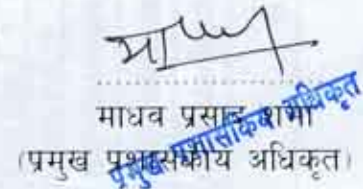 माधव प्रसाद शर्मा
(प्रमुख प्रशासकीय अधिकृत)
प्रमुख प्रशासकिय अधिकृत